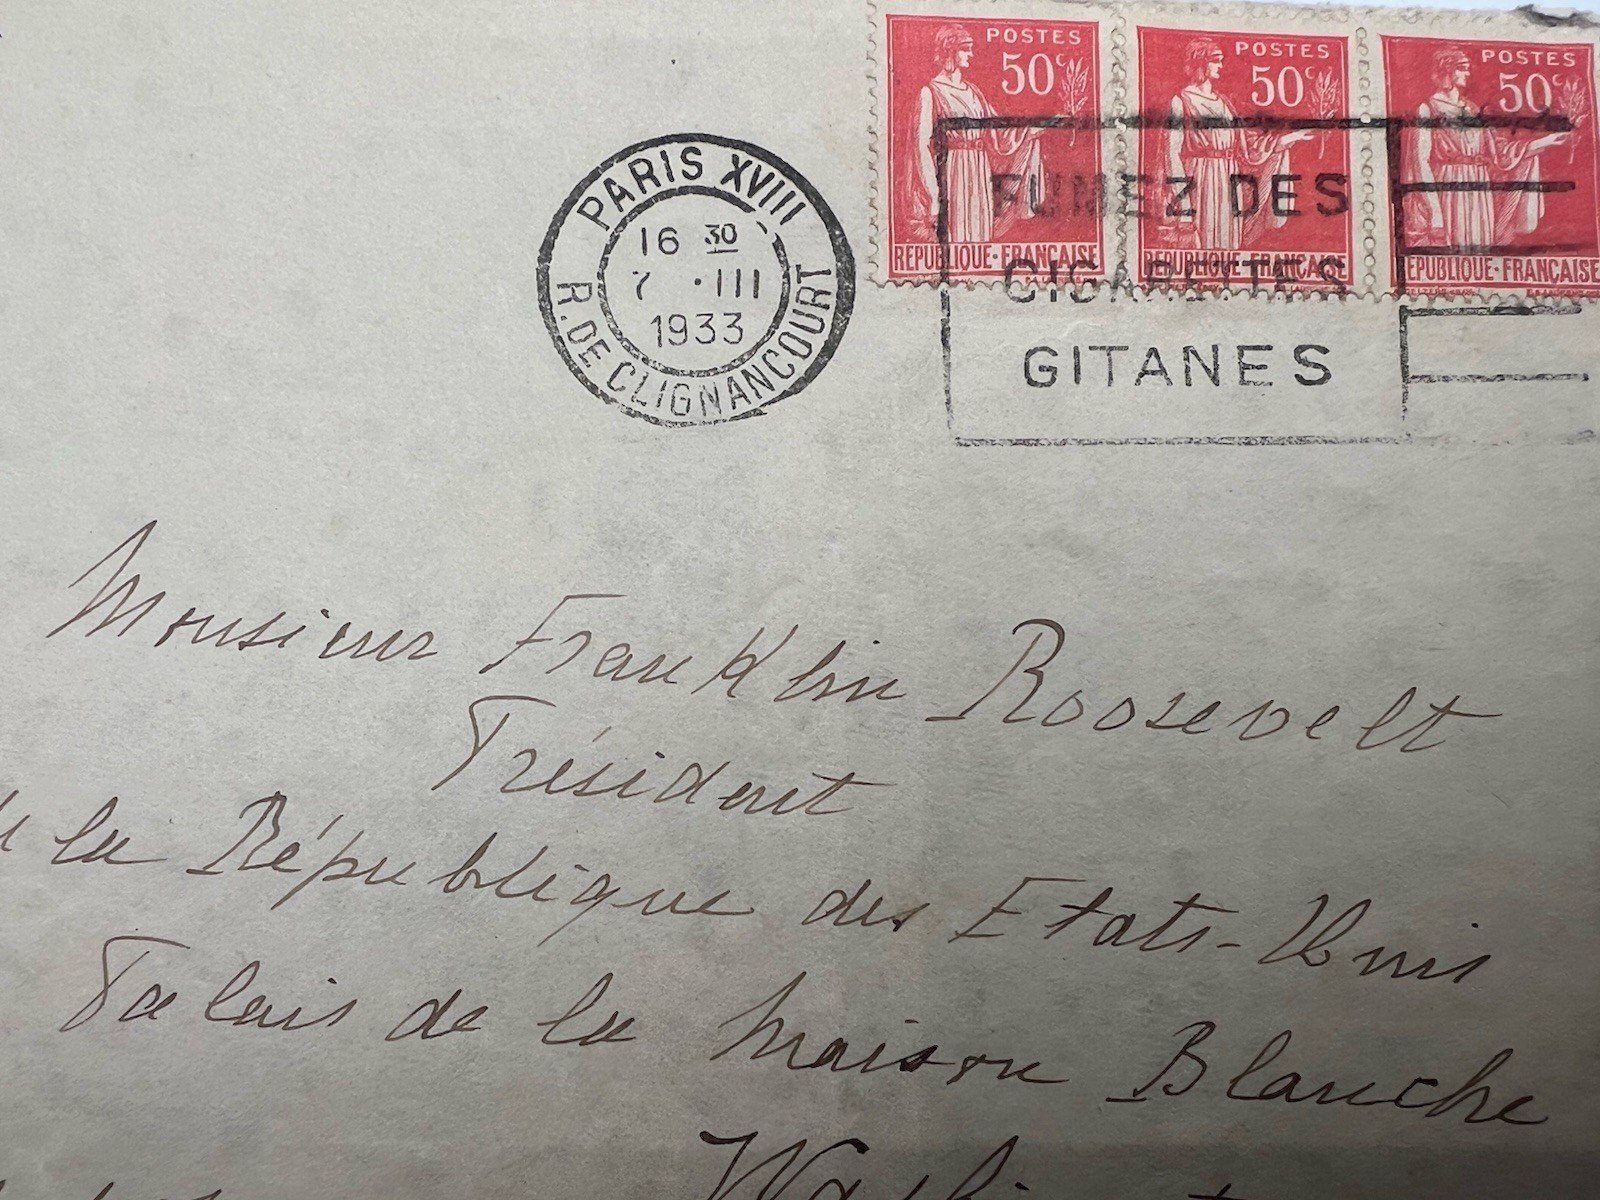 POSTES POSTES POSTES
50c 50c 50c
RÉPUBLIQUE·FRANÇAISE RÉPUBLIQUE·FRANÇAISE RÉPUBLIQUE·FRANÇAISE
PARIS XVIII
16 30
7 ·III
1933
R. DE CLIGNANCOURT
FUMEZ DES
CIGARETTES
GITANES
Monsieur Franklin Roosevelt
Président
la République des Etats-Unis
Palais de la Maison Blanche